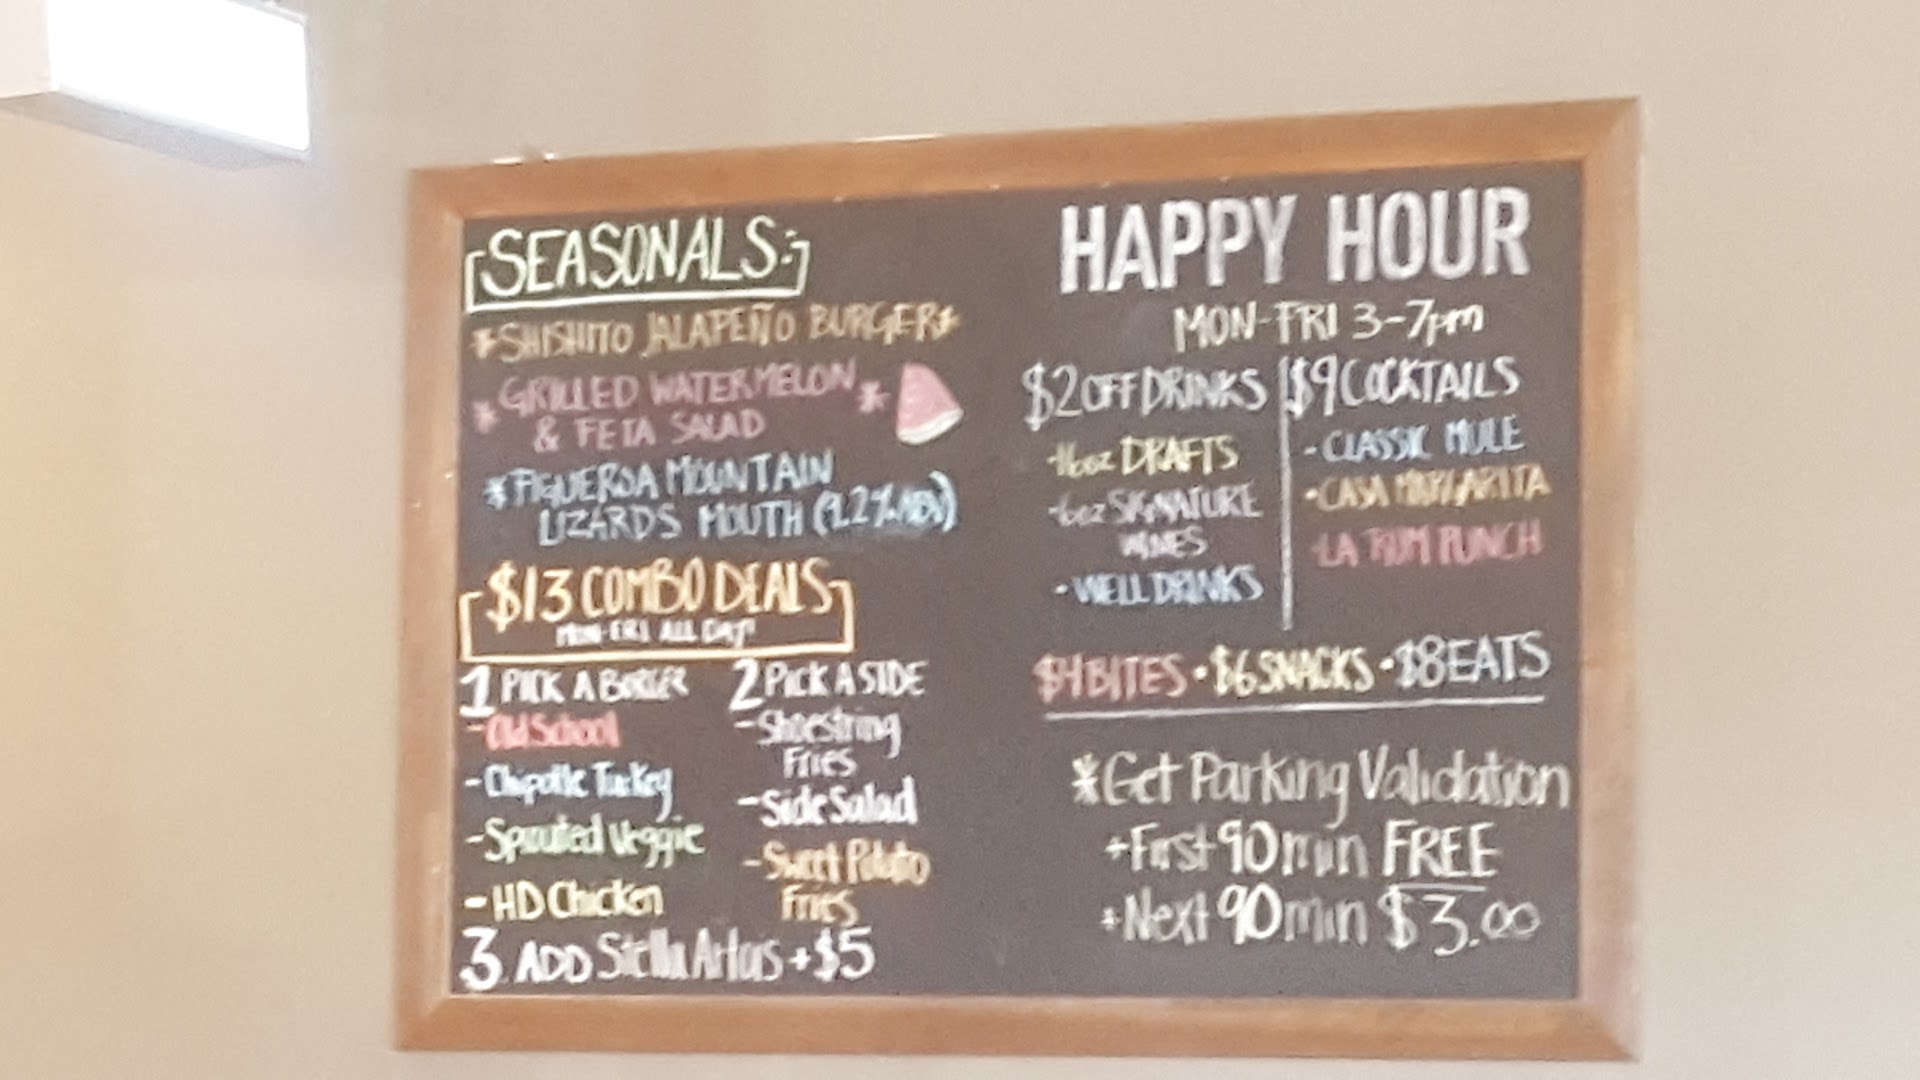 SEASONALS:
*SHISHITO JALAPEÑO BURGER*
*GRILLED WATERMELON*
& FETA SALAD
*FIGUEROA MOUNTAIN
LIZARDS MOUTH (9.2% ABV)
$13 COMBO DEALS
MON-FRI ALL DAY!
1 PICK A BURGER
-Old School
-Chipotle Turkey
-Sprouted Veggie
-HD Chicken
2 PICK A SIDE
-Shoestring
Fries
-Side Salad
-Sweet Potato
Fries
3. ADD Stella Artois +$5
HAPPY HOUR
MON-FRI 3-7pm
$2 OFF DRINKS
-16oz DRAFTS
-6oz SIGNATURE
WINES
-WELL DRINKS
$9 COCKTAILS
-CLASSIC MULE
-CASA MARGARITA
-LA RUM PUNCH
$4 BITES • $6 SNACKS • $8 EATS
*Get Parking Validation
+First 90 min FREE
+Next 90 min $3.00